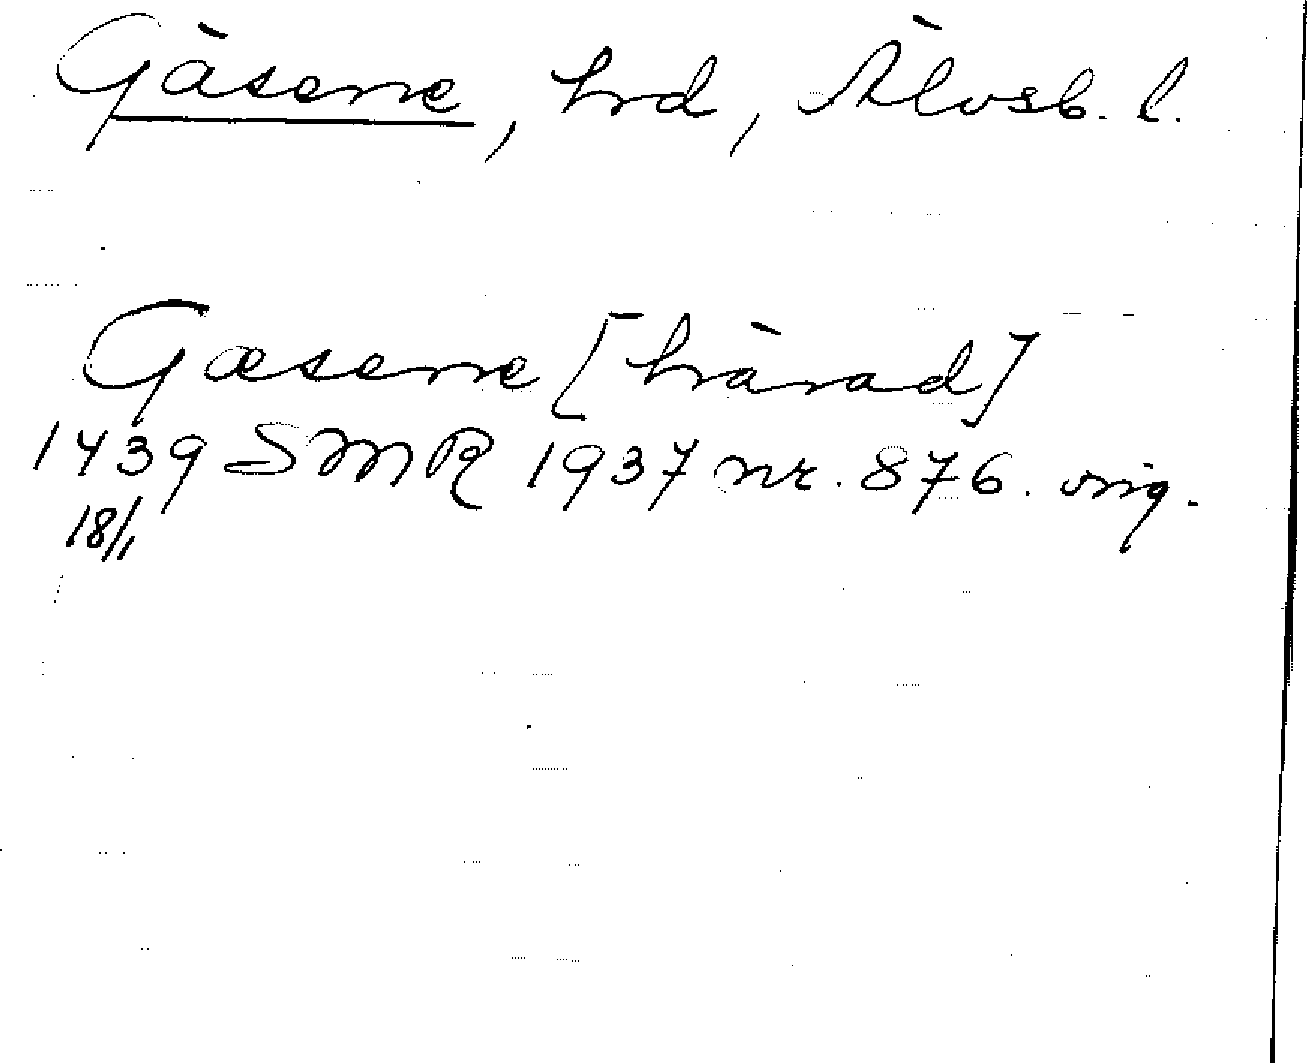 Gäsene, hrd, Älvsb. l.
Gæsene [härad]
1439 SMR 1937 nr. 876. orig.
18/1